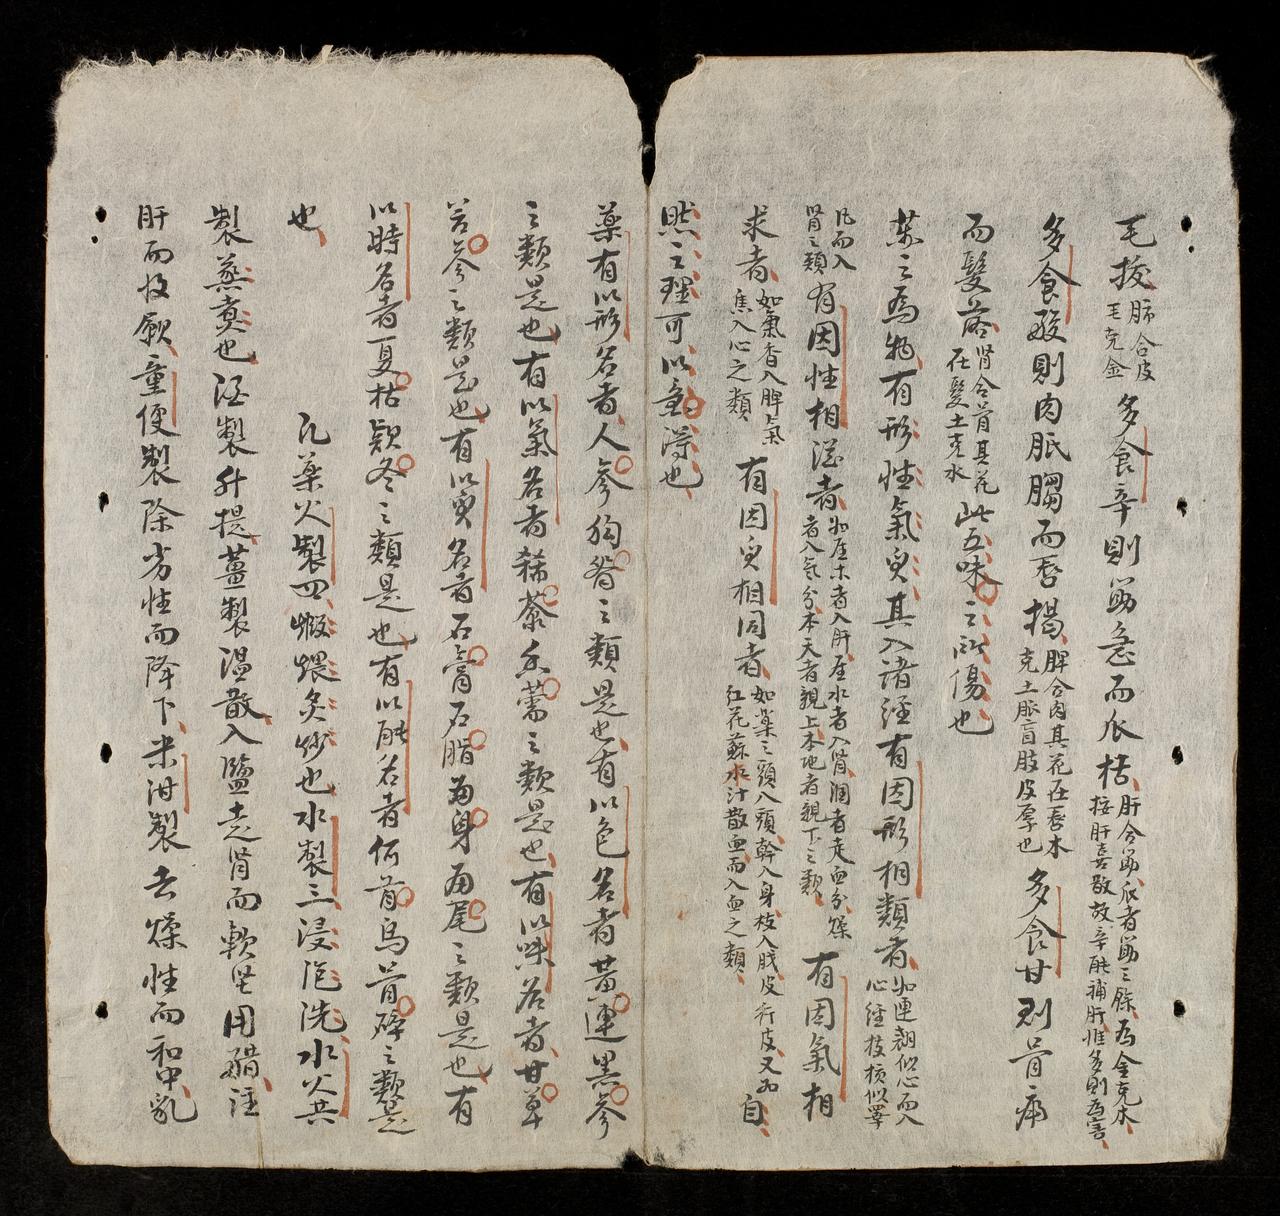 毛拔肺合皮毛克金多食辛則筋急而爪枯肝合筋爪者筋之餘為金克木按肝喜散故辛能補肝惟多則為害
多食酸則肉胝䐢而唇揭脾合肉其花在唇木克土脈盲肢皮厚也多食甘則骨痛
而髮落腎合骨其花在髮土克水此五味之所傷也
藥之為物有形性氣質其入諸經有因形相類者如連翹似心而入心經枝核似睪
凡而入腎之類有因性相從者如屬木者入肝屬水者入腎潤者走血分燥者入氣分本天者親上本地者親下之類有因氣相
求者如氣香入脾氣焦入心之類有因質相同者如藥之頭入頭幹入身枝入肢皮行皮又如紅花蘇木汁散血而入血之類自
然之理可以意得也
藥有以形名者人參狗脊之類是也有以色名者黃連黑參
之類是也有以氣名者豨薟香薷之類是也有以味名者甘草
苦參之類是也有以質名者石膏石脂為身為尾之類是也有
以時名者夏枯款冬之類是也有以能名者何首烏骨碎之類是
也
凡藥火製四煅煨炙炒也水製三浸泡洗水火共
製蒸煮也酒製升提薑製溫散入鹽走腎而軟堅用醋注
肝而收歛童便製除劣性而降下米泔製去燥性而和中乳